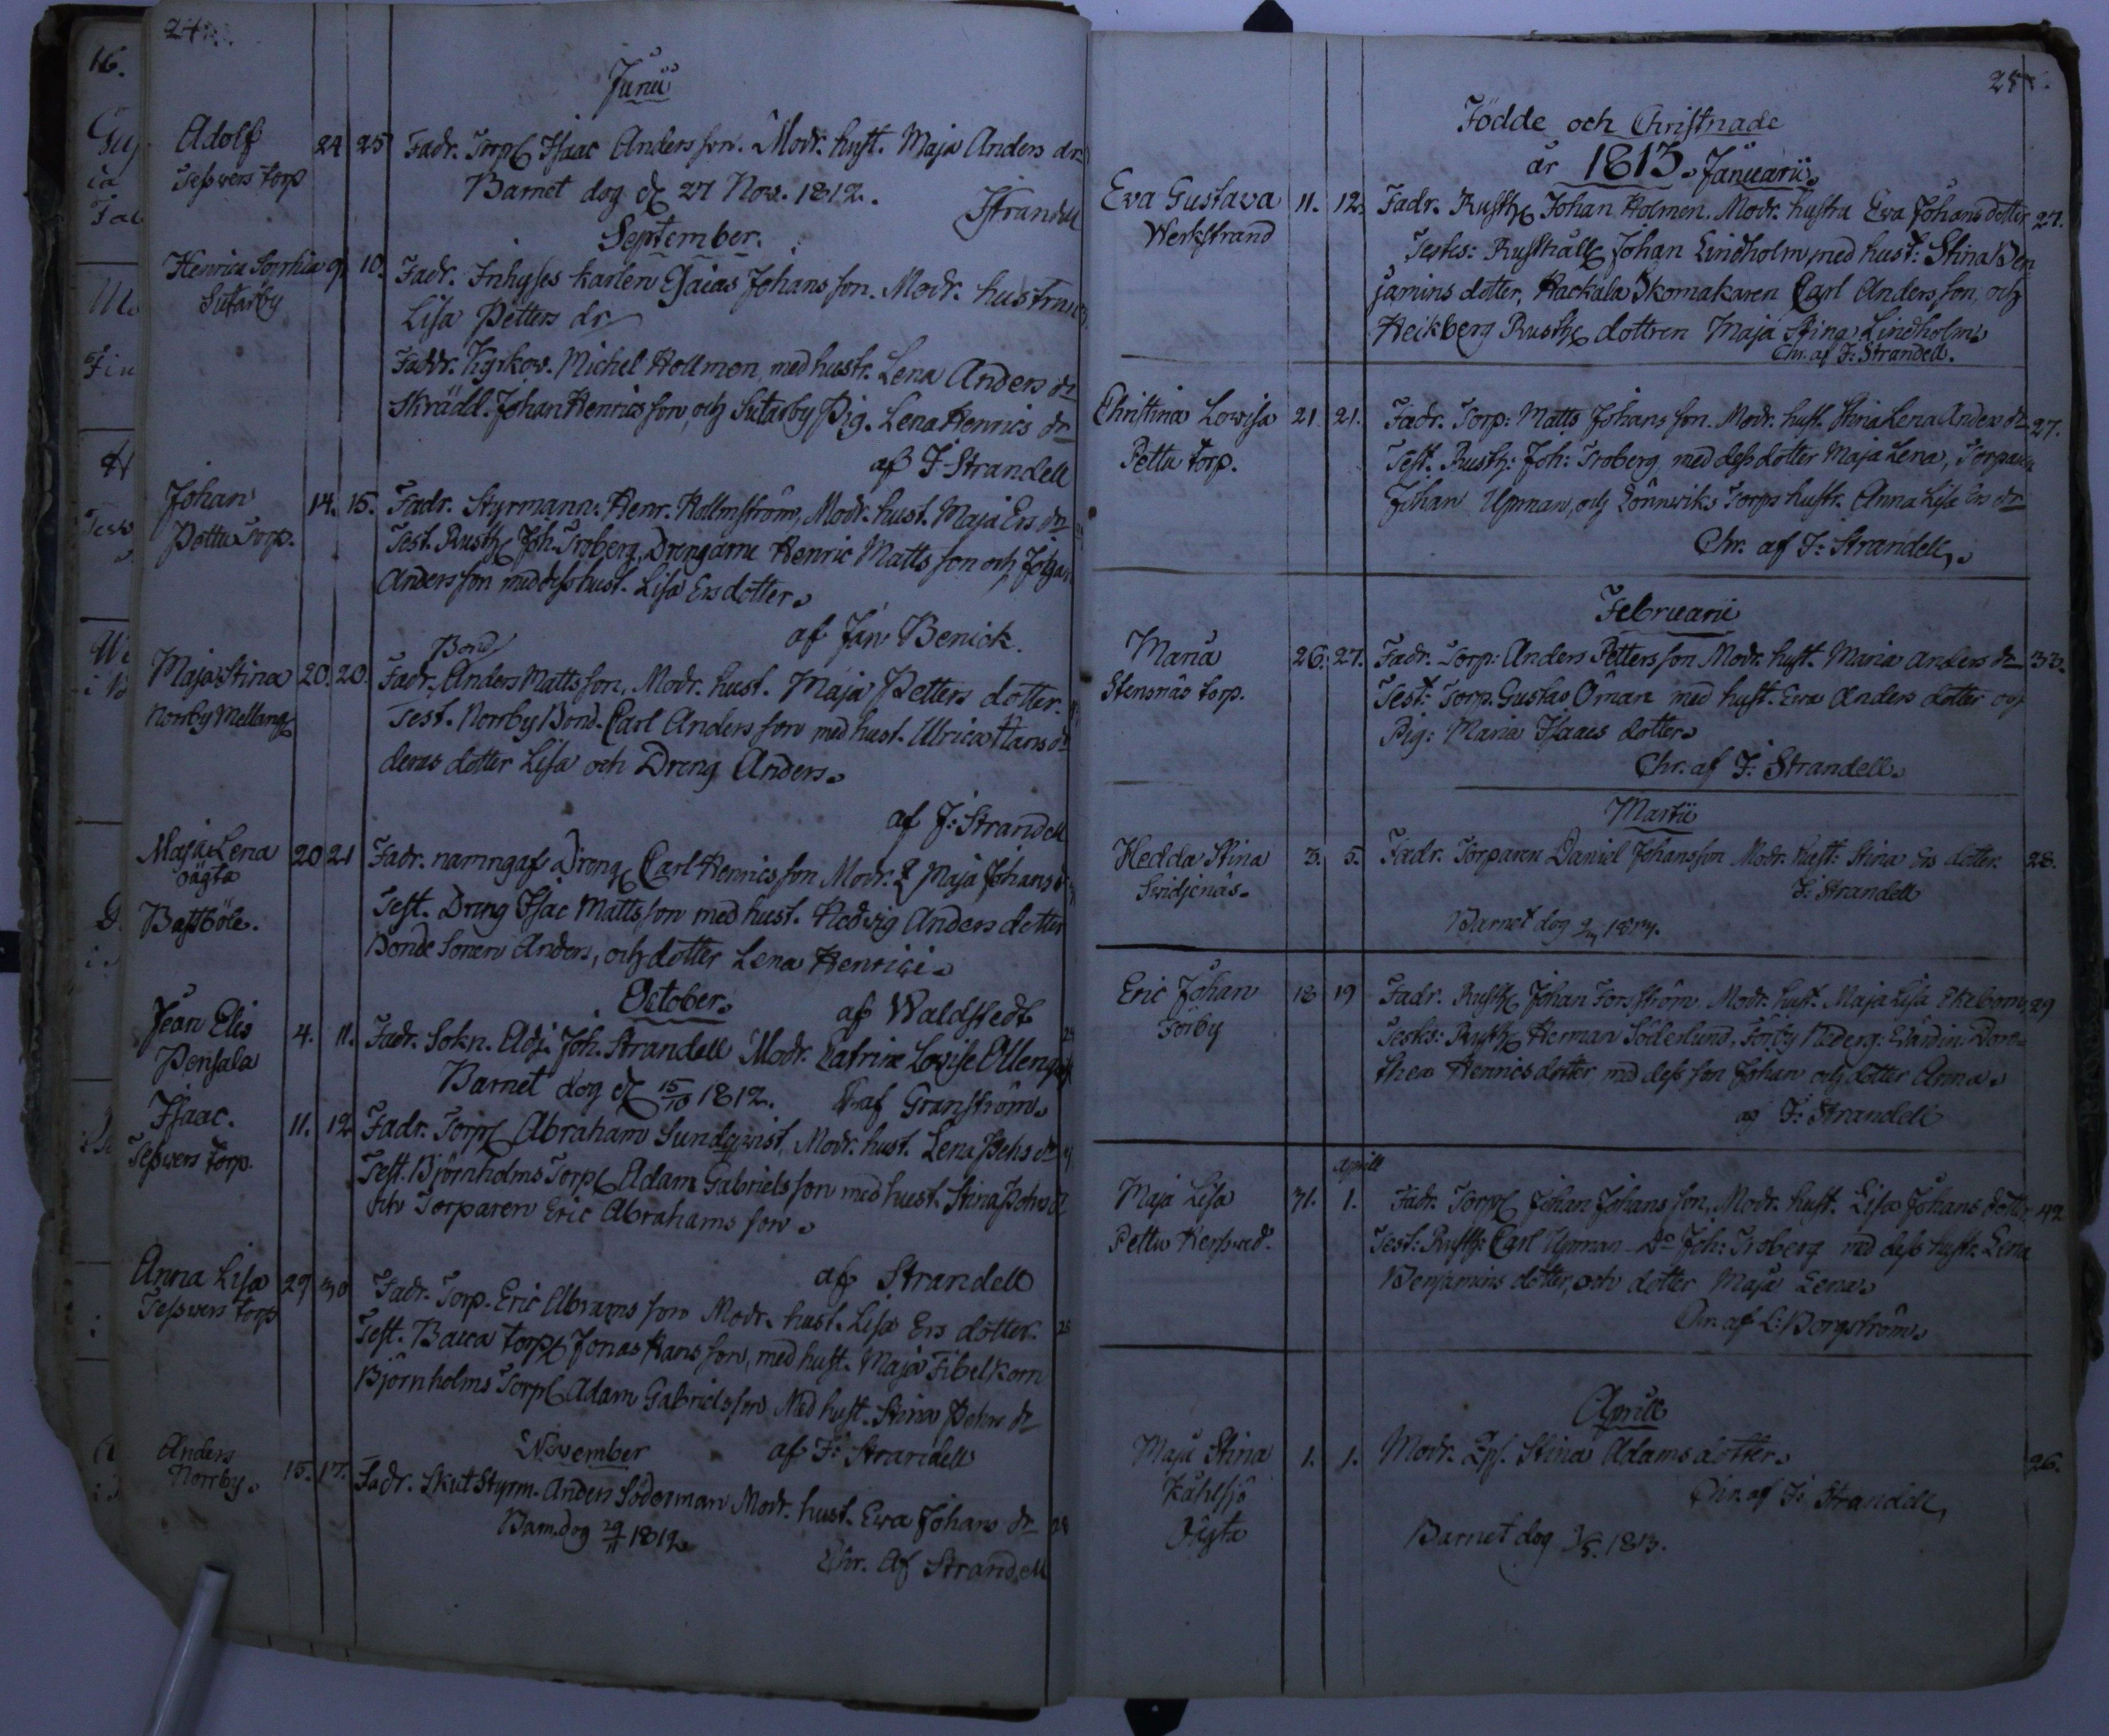 24
Junii
Adolf 24 25 Fadr. Torp Isaac Anders son. Modr. hust. Maja Anders dr
Tesswers torp Barnet dog d 27 Nov. 1812.
JStrandell
September.
Henrica Sophia 9. 10. Fadr. Inhyses karlen Esaias Johans son. Modr. hustru
Sutarby Lisa Petters dr
Faddr. Kyrkow. Michel Hollmen med hustr. Lena Anders dr
Skrädd. Johan Henrics son, och Sutarby Pig. Lena Henrics dr
af J: Strandell
Johan 14. 15. Fadr. Styrmann. Henr. Hollmström, Modr. hust. Maja Ers dr
Pettu Torp. Test. Rusth Joh. Troberg, Drengarne Henric Matts son och Johan
Anders son med dess hust. Lisa Ers dotter.
af Jan Benick.
Bond
Maja Stina 20. 20. Fadr. Anders Matts son, Modr. hust. Maja Petters dotter.
Norrby Mellang Test. Norrby Bond. Carl Anders son med hust. Ulrica Hans dr
deras dotter Lisa och Dreng Anders.
af J: Strandell
Maja Lena 20 21 Fadr. namngaf Dreng Carl Henrics son Modr. Maja Johans
oägta
Bastböle. Test. Dreng Isac Matts son med hust. Hedwig Anders dotter
Bonde sonen Anders, och dotter Lena Henrici.
October. af Waldstedt
Jean Elis 4. 11. Fadr. Sokn. Adj. Joh. Strandell Modr. Catrina Lovisa
Pensala Barnet dog d 15/10 1812. af Granström.
Isaac. 11. 12 Fadr. Torp Abraham Sundqwist, Modr. hust. Lena Pehs dr
Tesswers torp. Test. Björnholms Torp Adam Gabriels son med hust. Stina Pehrs dr
och Torparen Eric Abrahams son.
af Strandell
Anna Lisa 29 30 Fadr. Torp. Eric Abrams son Modr. hust. Lisa Ers dotter. 25
Tesswers torp Test. Bacca torp Jonas Hans son, med hust. Maja Fibelkorn
Björnholms Torp Adam Gabriels son Med hust. Stina Pehrs dr
November af J: Strandell
Anders 15. 17. Fadr. Skut Styrm. Anders Söderman Modr. hust. Ewa Johans dr 28
Norrby. Barn. dog 29/11 1812
Chr. Af Strandell
25
Födde och Christnade
år 1813. Januarii.
Eva Gustava 11. 12. Fadr. Rusth Johan Holmen, Modr. hustru Ewa Johans dotter 27.
Werkstrand Testes: Rusthåll Johan Lindholm med hust: Stina Ben
jamins dotter, Hackala Skomakaren Carl Anders son, och
Heikberg Rusth dottren Maja Stina Lindholm.
Chr. af J: Strandell.
Christina Lowisa 21. 21. Fadr. Torp: Matts Johans son. Modr. hust. Stina Lena Anders dr 27.
Pettu torp. Test. Rusth: Joh: Troberg, med dess dotter Maja Lena, Torparen
Johan Upman, och Lönnwiks Torps hustr. Anna Lisa Ers dr
Chr. af J: Strandell.
Februarii
Maria 26. 27. Fadr. Torp: Anders Petters son Modr. hust. Maria Anders dr 33.
Stensnäs torp. Test: Torp. Gustav Öman med hust. Ewa Anders dotter och
Pig: Maria Isaacs dotter.
Chr. af J: Strandell.
Martii
Hedda Stina 3. 5. Fadr. Torparen Daniel Johansson Modr. hust: Stina Ers dotter. 28.
Swidjenäs. J: Strandell
Barnet dog
Eric Johan 18 19 Fadr. Rusth Johan Forsström. Modr. hust. Maja Lisa Ekebom. 29
Förby Testes: Rusth Herman Söderlund, Förby Nederg: Wärdin: Doro
thea Henrics dotter med dess son Johan och dotter Anna.
af J: Strandell
Aprill
Maja Lisa 31. 1. Fadr. Torp Johan Johans son, Modr. hust. Lisa Johans dotter 42
Pettu Test: Rusth: Carl Upman Do Joh: Troberg med dess hustr: Lena
Benjamins dotter, och dotter Maja Lena.
Chr. af L: Borgström.
Aprill
Maja Stina 1. 1. Modr. Stina Adams dotter. 26.
Kåhlsjö Chr. af J: Strandell,
Oägta Barnet dog 1813.